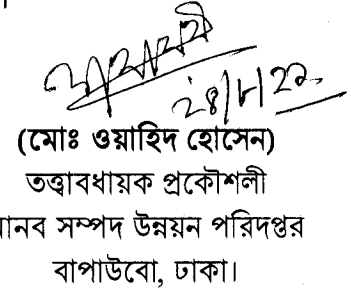 (মোঃ ওয়াহিদ হোসেন)
তত্ত্বাবধায়ক প্রকৌশলী
মানব সম্পদ উন্নয়ন পরিদপ্তর
বাপাউবো, ঢাকা।